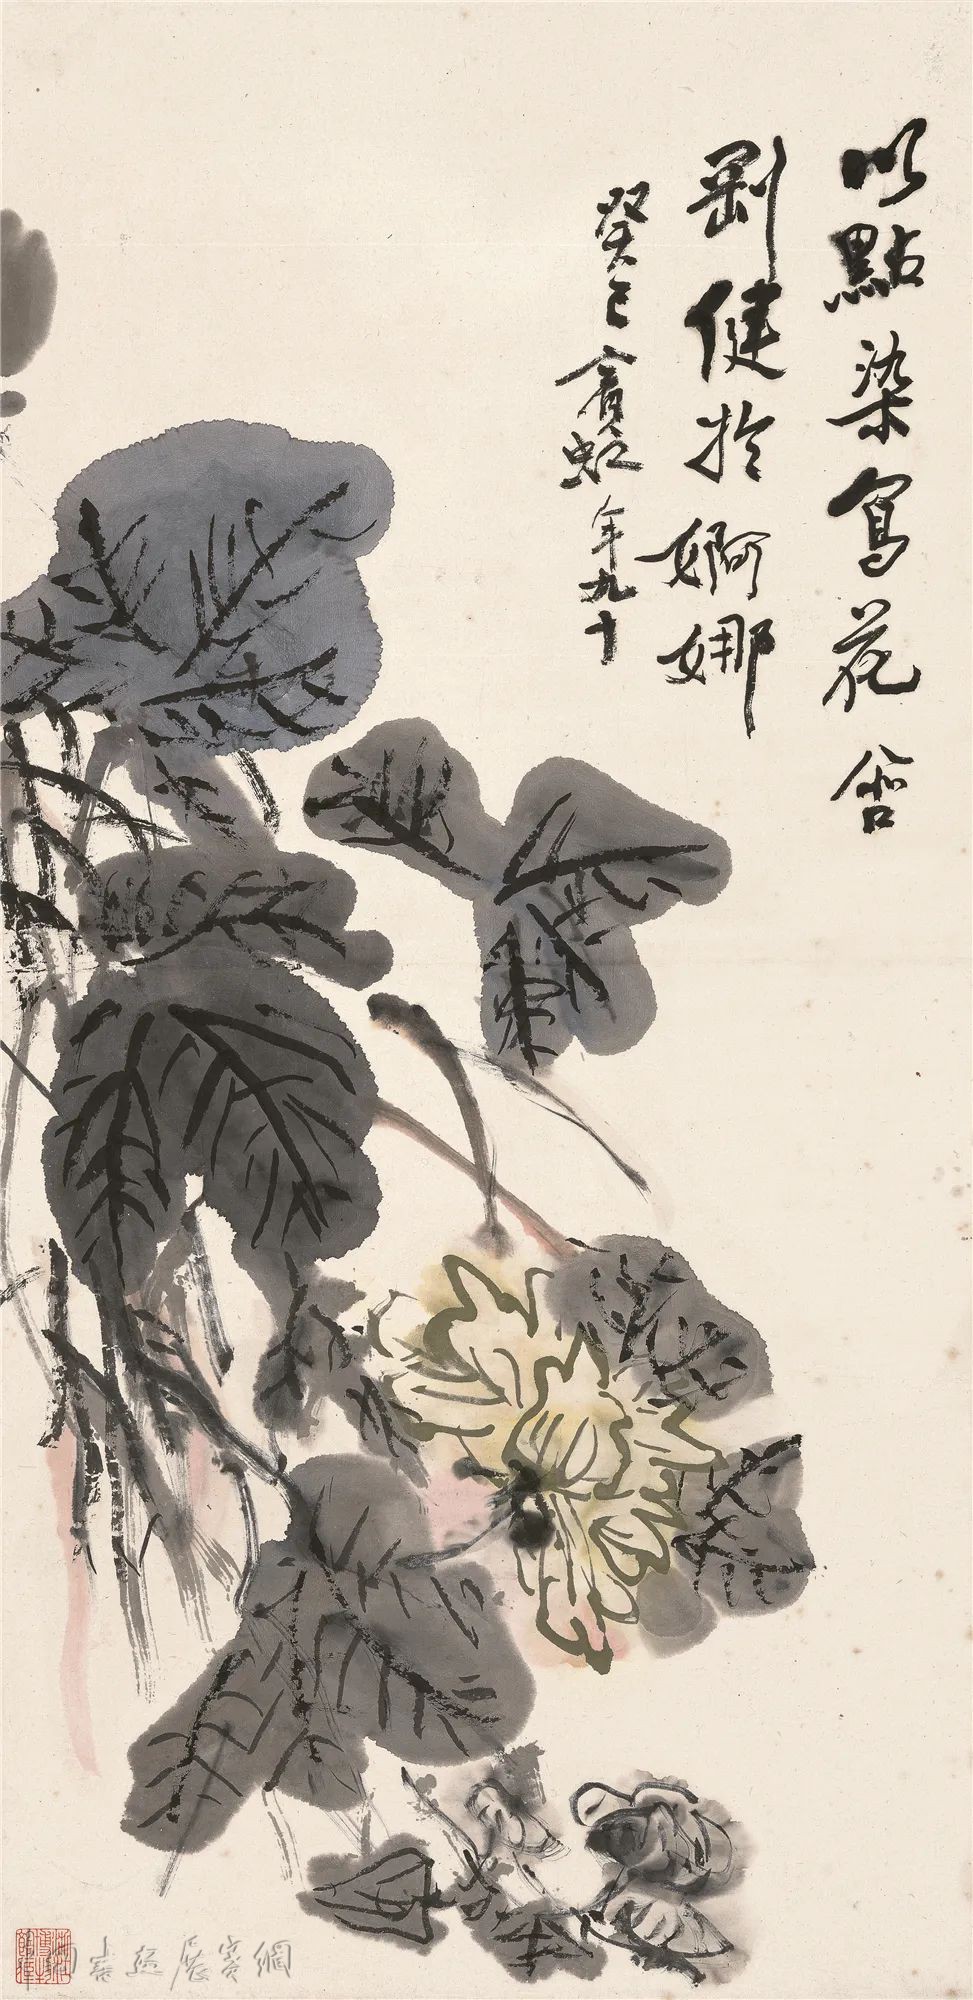 以點染寫花含
剛健於婀娜
癸巳賓虹年九十